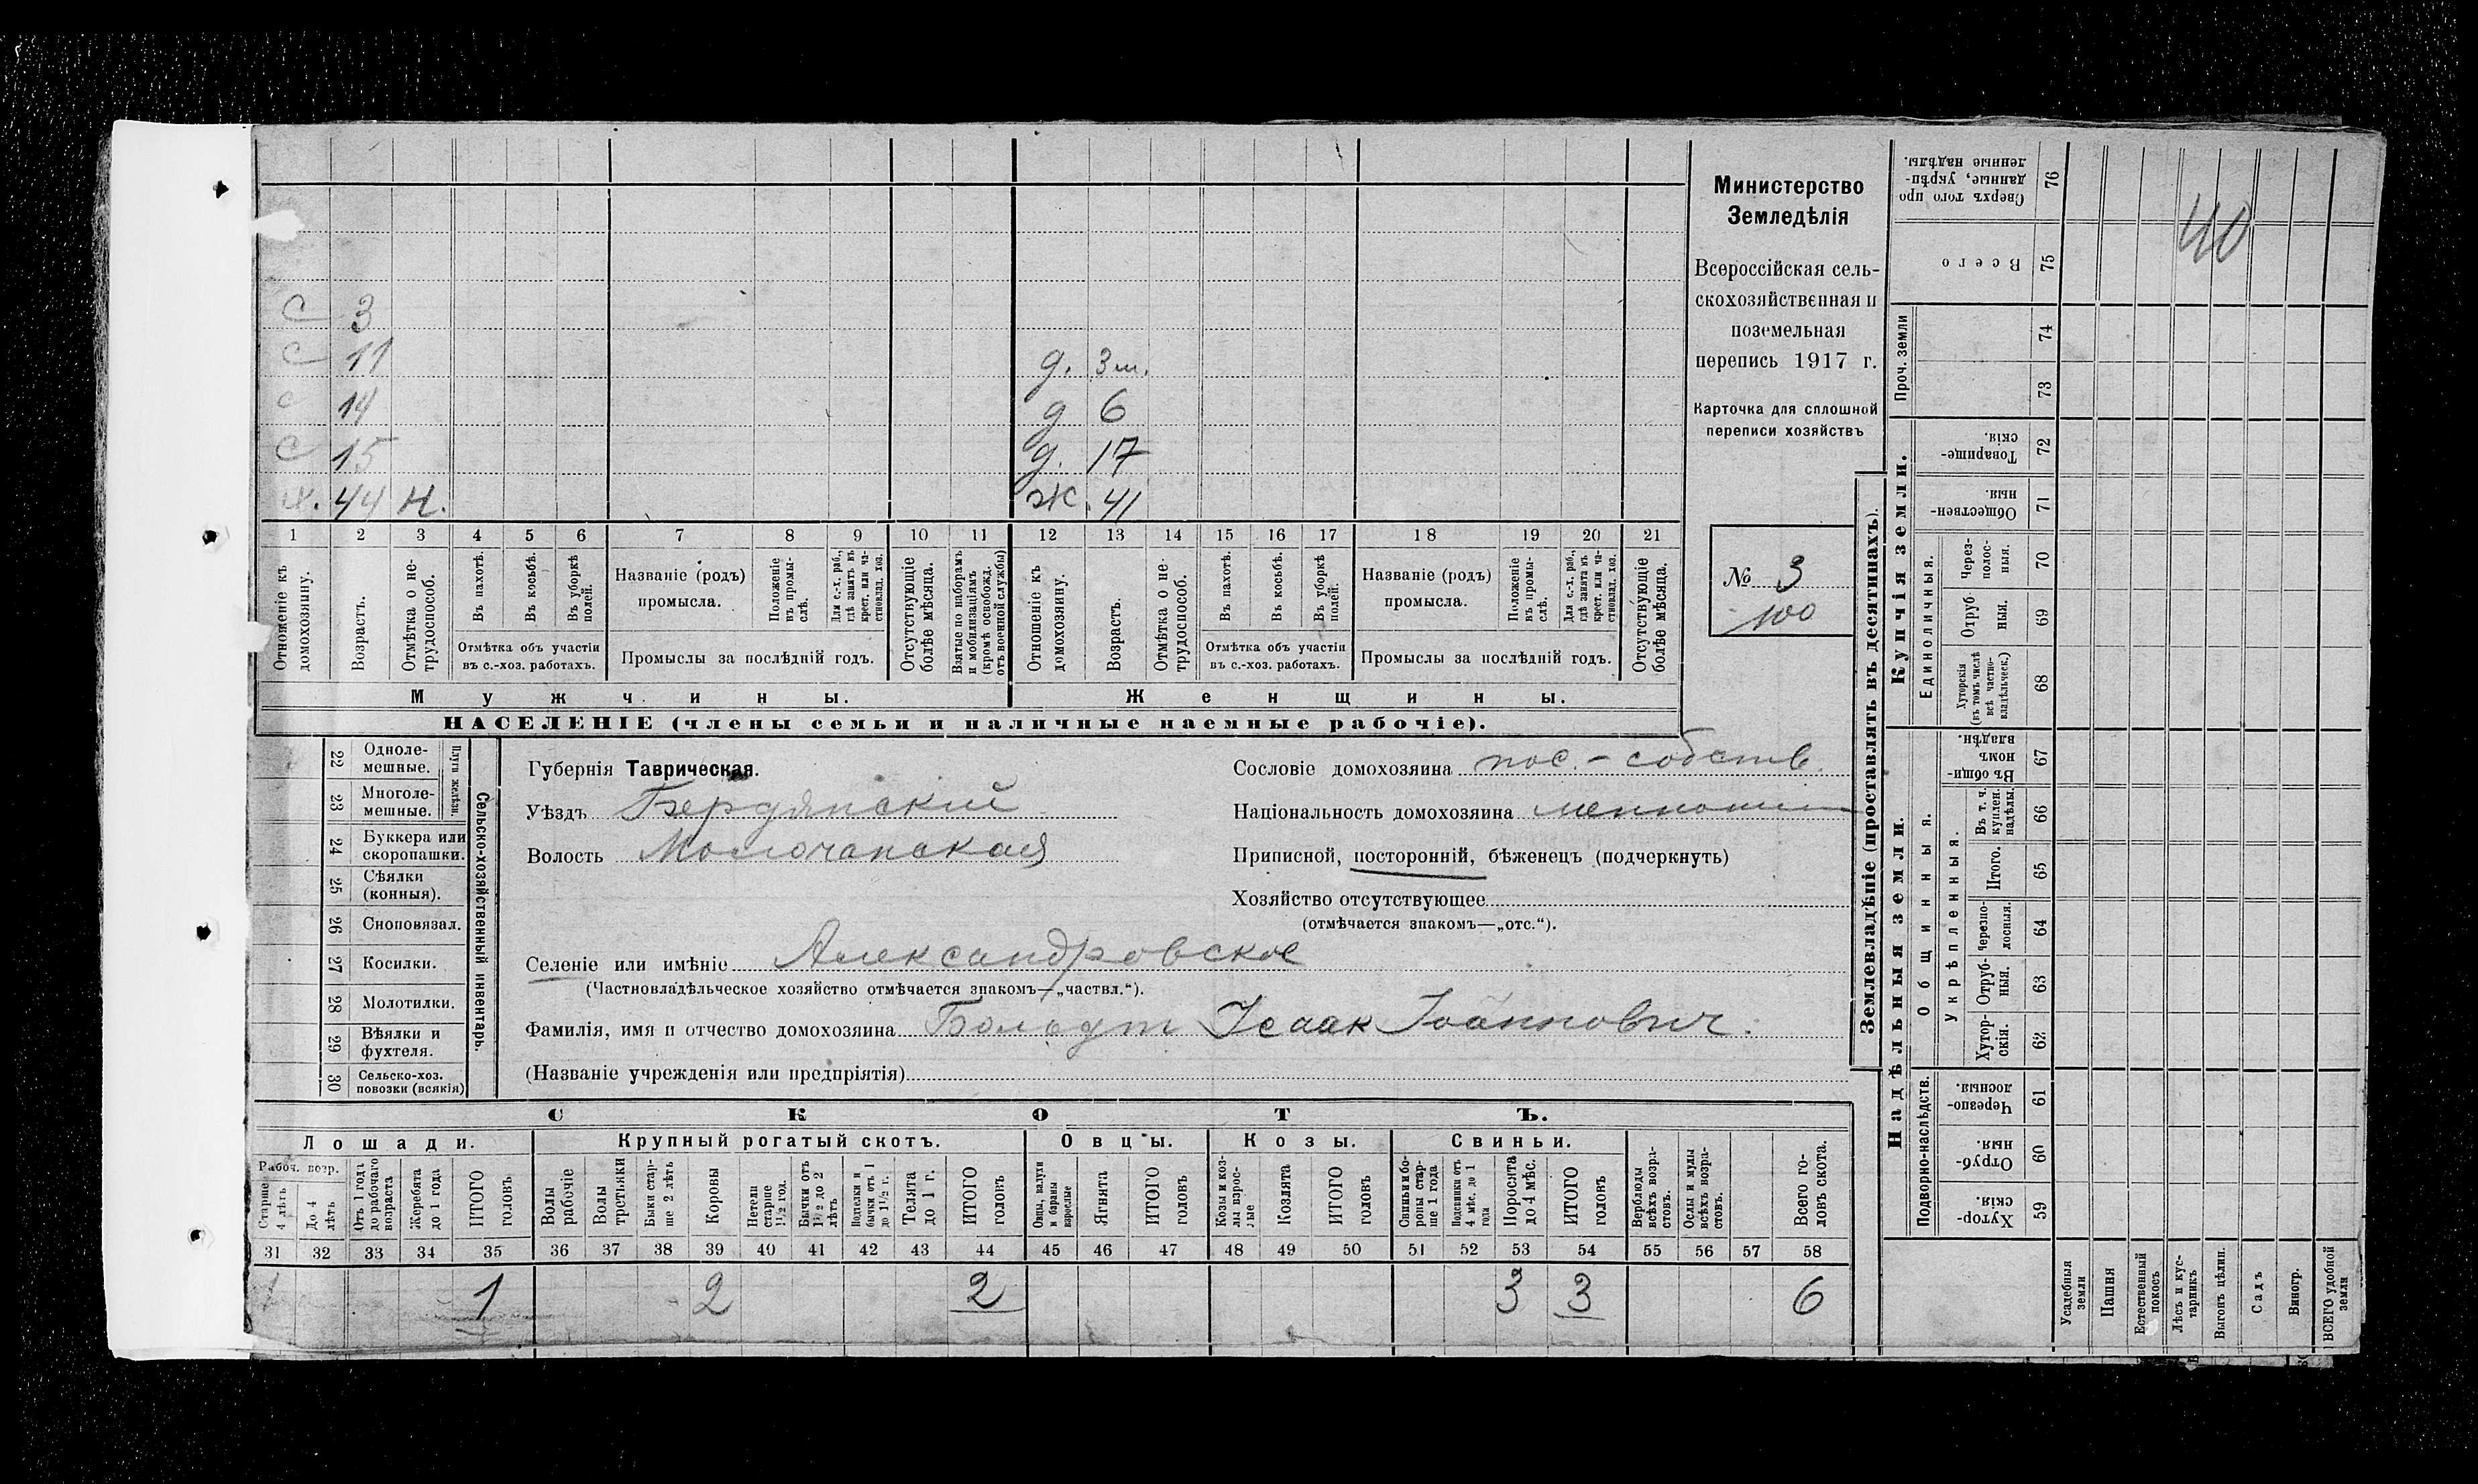 Министерство
Земледѣлія
Всероссійская сель-
скохозяйственная и
поземельная
перепись 1917 г.
Карточка для сплошной
переписи хозяйствъ
№ 3
100
40
С 3
С 11
С 14
С 15
Х. 44 Н.
д. 3 м.
д 6
д. 17
Ж. 41
1 2 3 4 5 6 7 8 9 10 11 12 13 14 15 16 17 18 19 20 21
Отношеніе къ домохозяину.
Возрастъ.
Отмѣтка о не-трудоспособ.
Въ пахотѣ.
Въ косьбѣ.
Въ уборкѣ полей.
Отмѣтка объ участіи
въ с.-хоз. работахъ.
Названіе (родъ)
промысла.
Положеніе въ промы-слѣ.
Для с.-х. раб., гдѣ занятъ въ крест. или ча-стновлад. хоз.
Промыслы за послѣдній годъ.
Отсутствующіе болѣе мѣсяца.
Взятые по наборамъ и мобилизаціямъ (кромѣ освобожд. отъ военной службы)
Отношеніе къ домохозяину.
Возрастъ.
Отмѣтка о не-трудоспособ.
Въ пахотѣ.
Въ косьбѣ.
Въ уборкѣ полей.
Отмѣтка объ участіи
въ с.-хоз. работахъ.
Названіе (родъ)
промысла.
Положеніе въ промы-слѣ.
Для с.-х. раб., гдѣ занята въ крест. или ча-стновлад. хоз.
Промыслы за послѣдній годъ.
Отсутствующіе болѣе мѣсяца.
Мужчины.
Женщины.
НАСЕЛЕНІЕ (члены семьи и наличные наемные рабочіе).
22 Одноле-мешные.
23 Многоле-мешные.
Плуги желѣзн.
24 Буккера или скоропашки.
25 Сѣялки (конныя).
26 Сноповязал.
27 Косилки.
28 Молотилки.
29 Вѣялки и фухтеля.
30 Сельско-хоз. повозки (всякія)
Сельско-хозяйственный инвентарь.
Губернія Таврическая.
Уѣздъ Бердянскій
Волость Молочанская
Селеніе или имѣніе Александровское
(Частновладѣльческое хозяйство отмѣчается знакомъ—„частвл.“).
Фамилія, имя и отчество домохозяина Исаак Іоанновичъ.
(Названіе учрежденія или предпріятія)
Сословіе домохозяина пос.-собств.
Національность домохозяина меннонит
Приписной, посторонній, бѣженецъ (подчеркнуть)
Хозяйство отсутствующее
(отмѣчается знакомъ—„отс.“).
СКОТЪ.
Лошади.
Крупный рогатый скотъ.
Овцы.
Козы.
Свиньи.
Рабоч. возр.
Старше 4 лѣтъ
До 4 лѣтъ
Отъ 1 года до рабочаго возраста
Жеребята до 1 года
ИТОГО головъ
Волы рабочіе
Волы третьяки
Быки стар-ше 2 лѣтъ
Коровы
Нетели старше 1½ год.
Бычки отъ 1½ до 2 лѣтъ
Подтелки и бычки отъ 1 до 1½ г.
Телята до 1 г.
ИТОГО головъ
Овцы, валухи и бараны взрослые
Ягнята
ИТОГО головъ
Козы и коз-лы взрос-лые
Козлята
ИТОГО головъ
Свиньи и бо-ровы стар-ше 1 года
Подсвинки отъ 4 мѣс. до 1 года
Поросята до 4 мѣс.
ИТОГО головъ
Верблюды всѣхъ возра-стовъ.
Ослы и мулы всѣхъ возра-стовъ.
Всего го-ловъ скота.
31 32 33 34 35 36 37 38 39 40 41 42 43 44 45 46 47 48 49 50 51 52 53 54 55 56 57 58
1 1 2 2 3 3 6
Землевладѣніе (проставлять въ десятинахъ).
Купчія земли.
Надѣльныя земли.
Сверхъ того про-данные, укрѣп-ленные надѣлы. 76
Всего 75
Проч. земли
74
73
Товарище-скія. 72
Обществен-ныя. 71
Единоличныя.
Через-полос-ныя. 70
Отруб-ныя. 69
Хуторскія (въ томъ числѣ всѣ частно-владѣльческ.) 68
Общинныя.
Въ общи-номъ владѣн. 67
Укрѣпленныя.
Въ т. ч. куплен. надѣлы. 66
Итого. 65
Черезпо-лосныя. 64
Отруб-ныя. 63
Хутор-скія. 62
Подворно-наслѣдств.
Черезпо-лосныя. 61
Отруб-ныя. 60
Хутор-скія. 59
Усадебныя земли
Пашня
Естественный покосъ
Лѣсъ и кус-тарникъ
Выгонъ цѣлин.
Садъ
Виногр.
ВСЕГО удобной земли